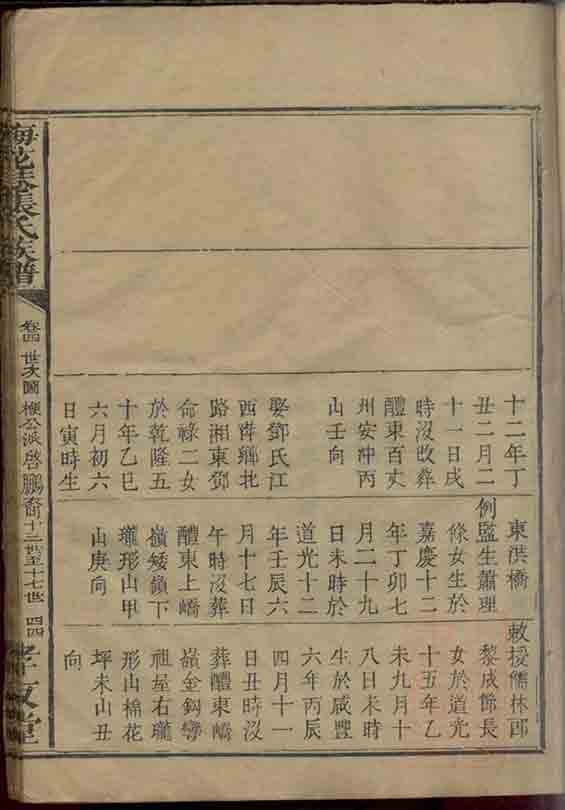 十二年丁
丑二月二
十一日戌
時沒改葬
醴東百丈
州安冲丙
山壬向
娶鄧氏江
西萍鄉北
路湘東鄧
命祿二女
於乾隆五
十年乙巳
六月初六
日寅時生
東洪橋
例監生蕭理
條女生於
嘉慶十二
年丁卯七
月二十九
日未時於
道光十二
年壬辰六
月十七日
午時沒葬
醴東上嶠
嶺矮嶺下
瓏形山甲
山庚向
敕授儒林郎
黎成飾長
女於道光
十五年乙
未九月十
八日未時
生於咸豐
六年丙辰
四月十一
日丑時沒
葬醴東嶠
嶺金鈎彎
祖屋右瓏
形山棉花
坪未山丑
向
張氏族譜
卷四 世次圖 楩公派啓鵬裔 十三世至十七世 四四
孝友堂